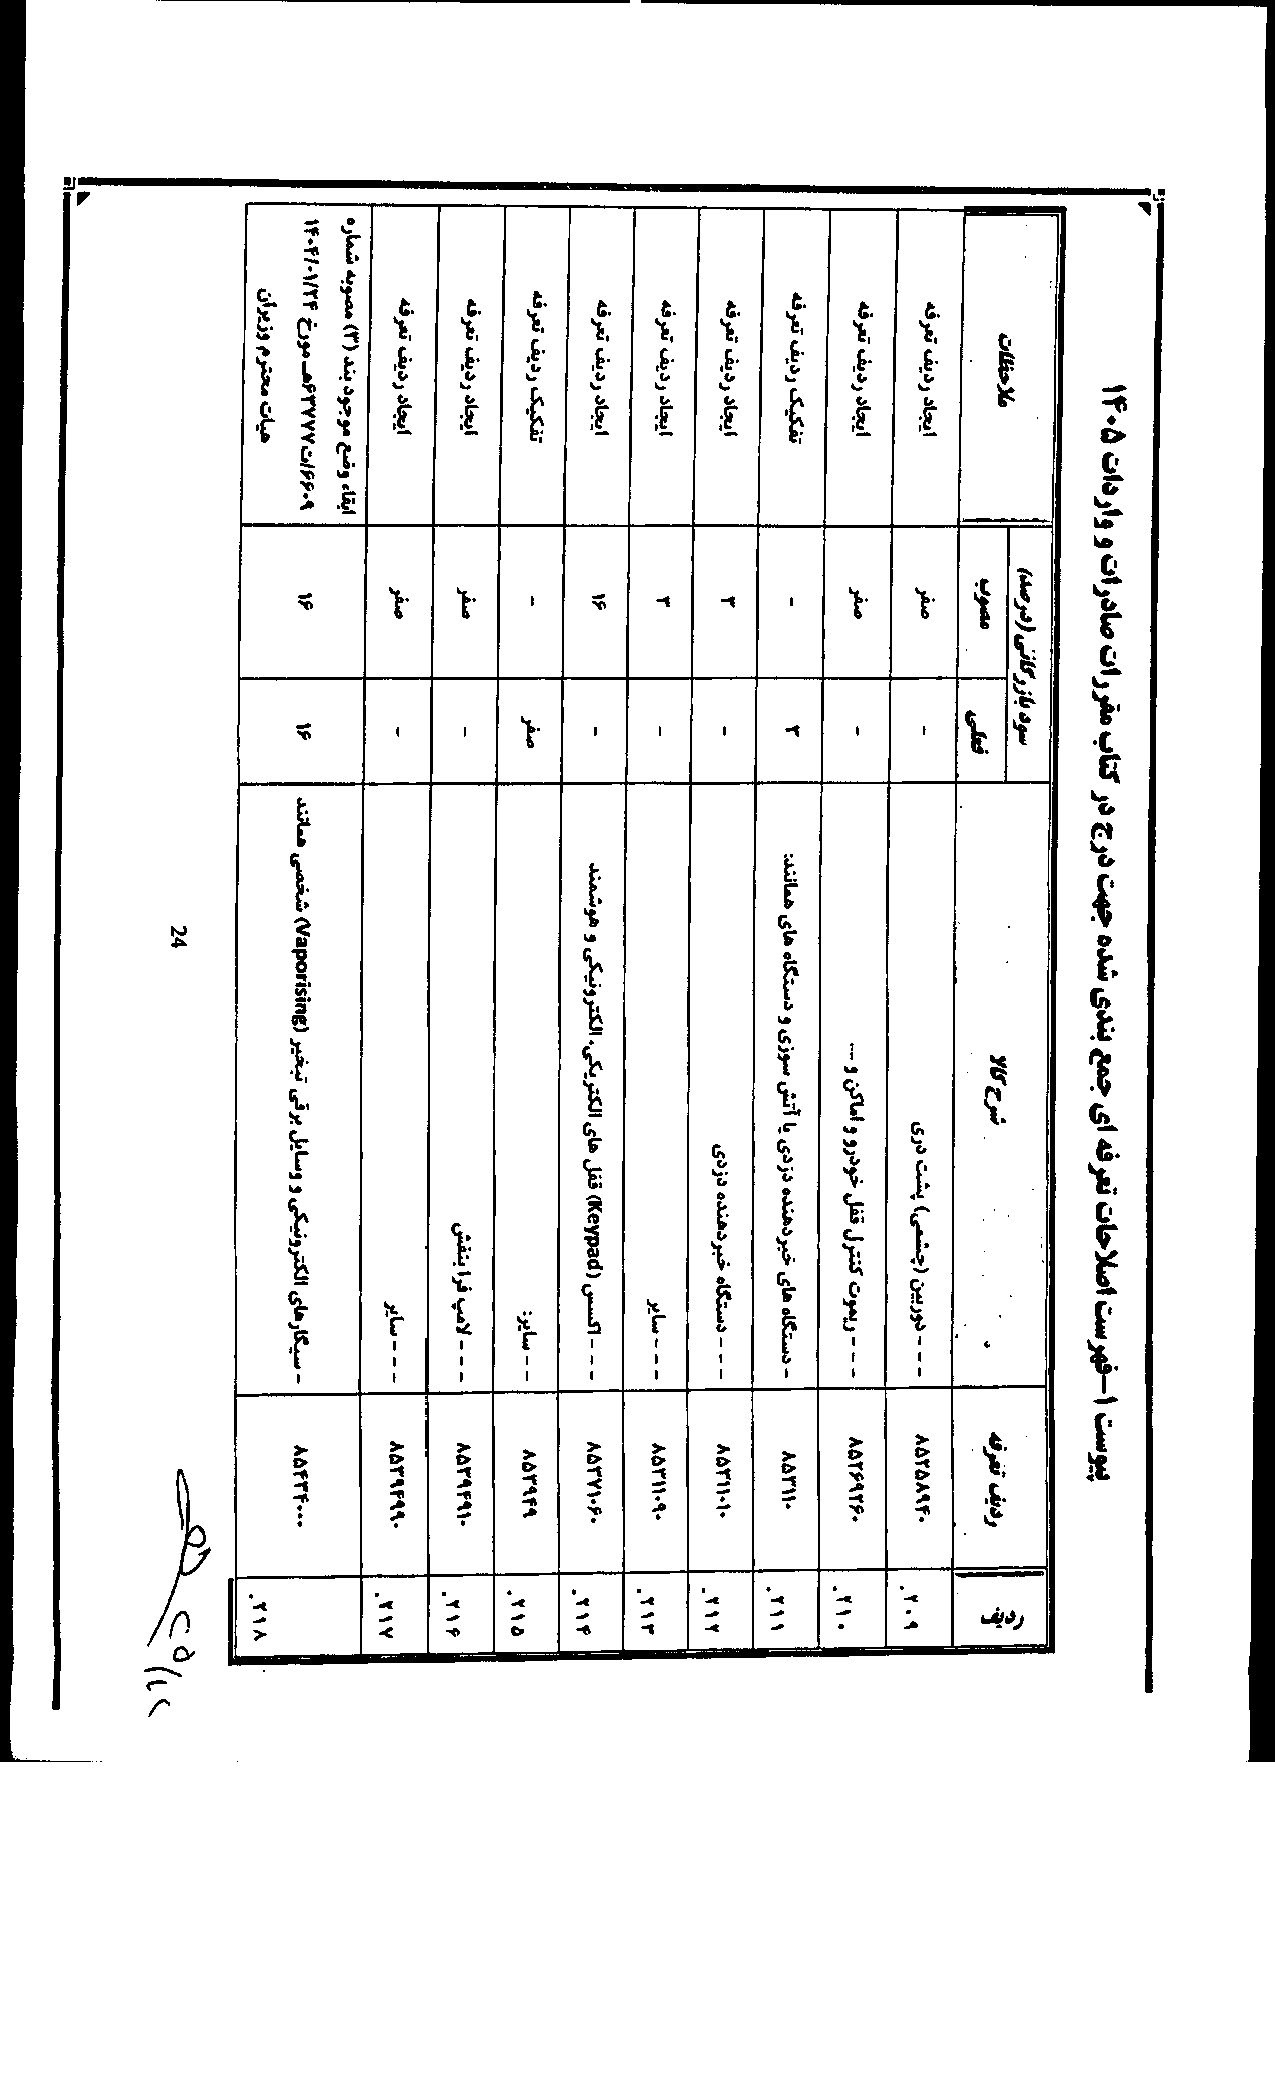 پیوست ۱-فهرست اصلاحات تعرفه ای جمع بندی شده جهت درج در کتاب مقررات صادرات و واردات ۱۴۰۵
ردیف | ردیف تعرفه | شرح کالا | سود بازرگانی (درصد) | ملاحظات
فعلی | مصوب
۲۰۹. | ۸۵۲۵۸۹۴۰ | - - - دوربین (چشمی) پشت دری | - | صفر | ایجاد ردیف تعرفه
۲۱۰. | ۸۵۲۶۹۲۶۰ | - - - ریموت کنترل قفل خودرو و اماکن و ... | - | صفر | ایجاد ردیف تعرفه
۲۱۱. | ۸۵۳۱۱۰ | - دستگاه های خبردهنده دزدی یا آتش سوزی و دستگاه های همانند: | ۳ | - | تفکیک ردیف تعرفه
۲۱۲. | ۸۵۳۱۱۰۱۰ | - - - دستگاه خبردهنده دزدی | - | ۳ | ایجاد ردیف تعرفه
۲۱۳. | ۸۵۳۱۱۰۹۰ | - - - سایر | - | ۳ | ایجاد ردیف تعرفه
۲۱۴. | ۸۵۳۷۱۰۶۰ | - - - اکسس (Keypad) قفل های الکتریکی، الکترونیکی و هوشمند | - | ۱۶ | ایجاد ردیف تعرفه
۲۱۵. | ۸۵۳۹۴۹ | - - سایر: | صفر | - | تفکیک ردیف تعرفه
۲۱۶. | ۸۵۳۹۴۹۱۰ | - - - لامپ فرا بنفش | - | صفر | ایجاد ردیف تعرفه
۲۱۷. | ۸۵۳۹۴۹۹۰ | - - - سایر | - | صفر | ایجاد ردیف تعرفه
۲۱۸. | ۸۵۴۳۴۰۰۰ | - سیگارهای الکترونیکی و وسایل برقی تبخیر (Vaporising) شخصی همانند | ۱۶ | ۱۶ | ابقاء وضع موجود بند (۳) مصوبه شماره
۶۶۰۹/ت۶۳۷۷۷هـ مورخ ۱۴۰۴/۰۱/۲۴
هیات محترم وزیران
24